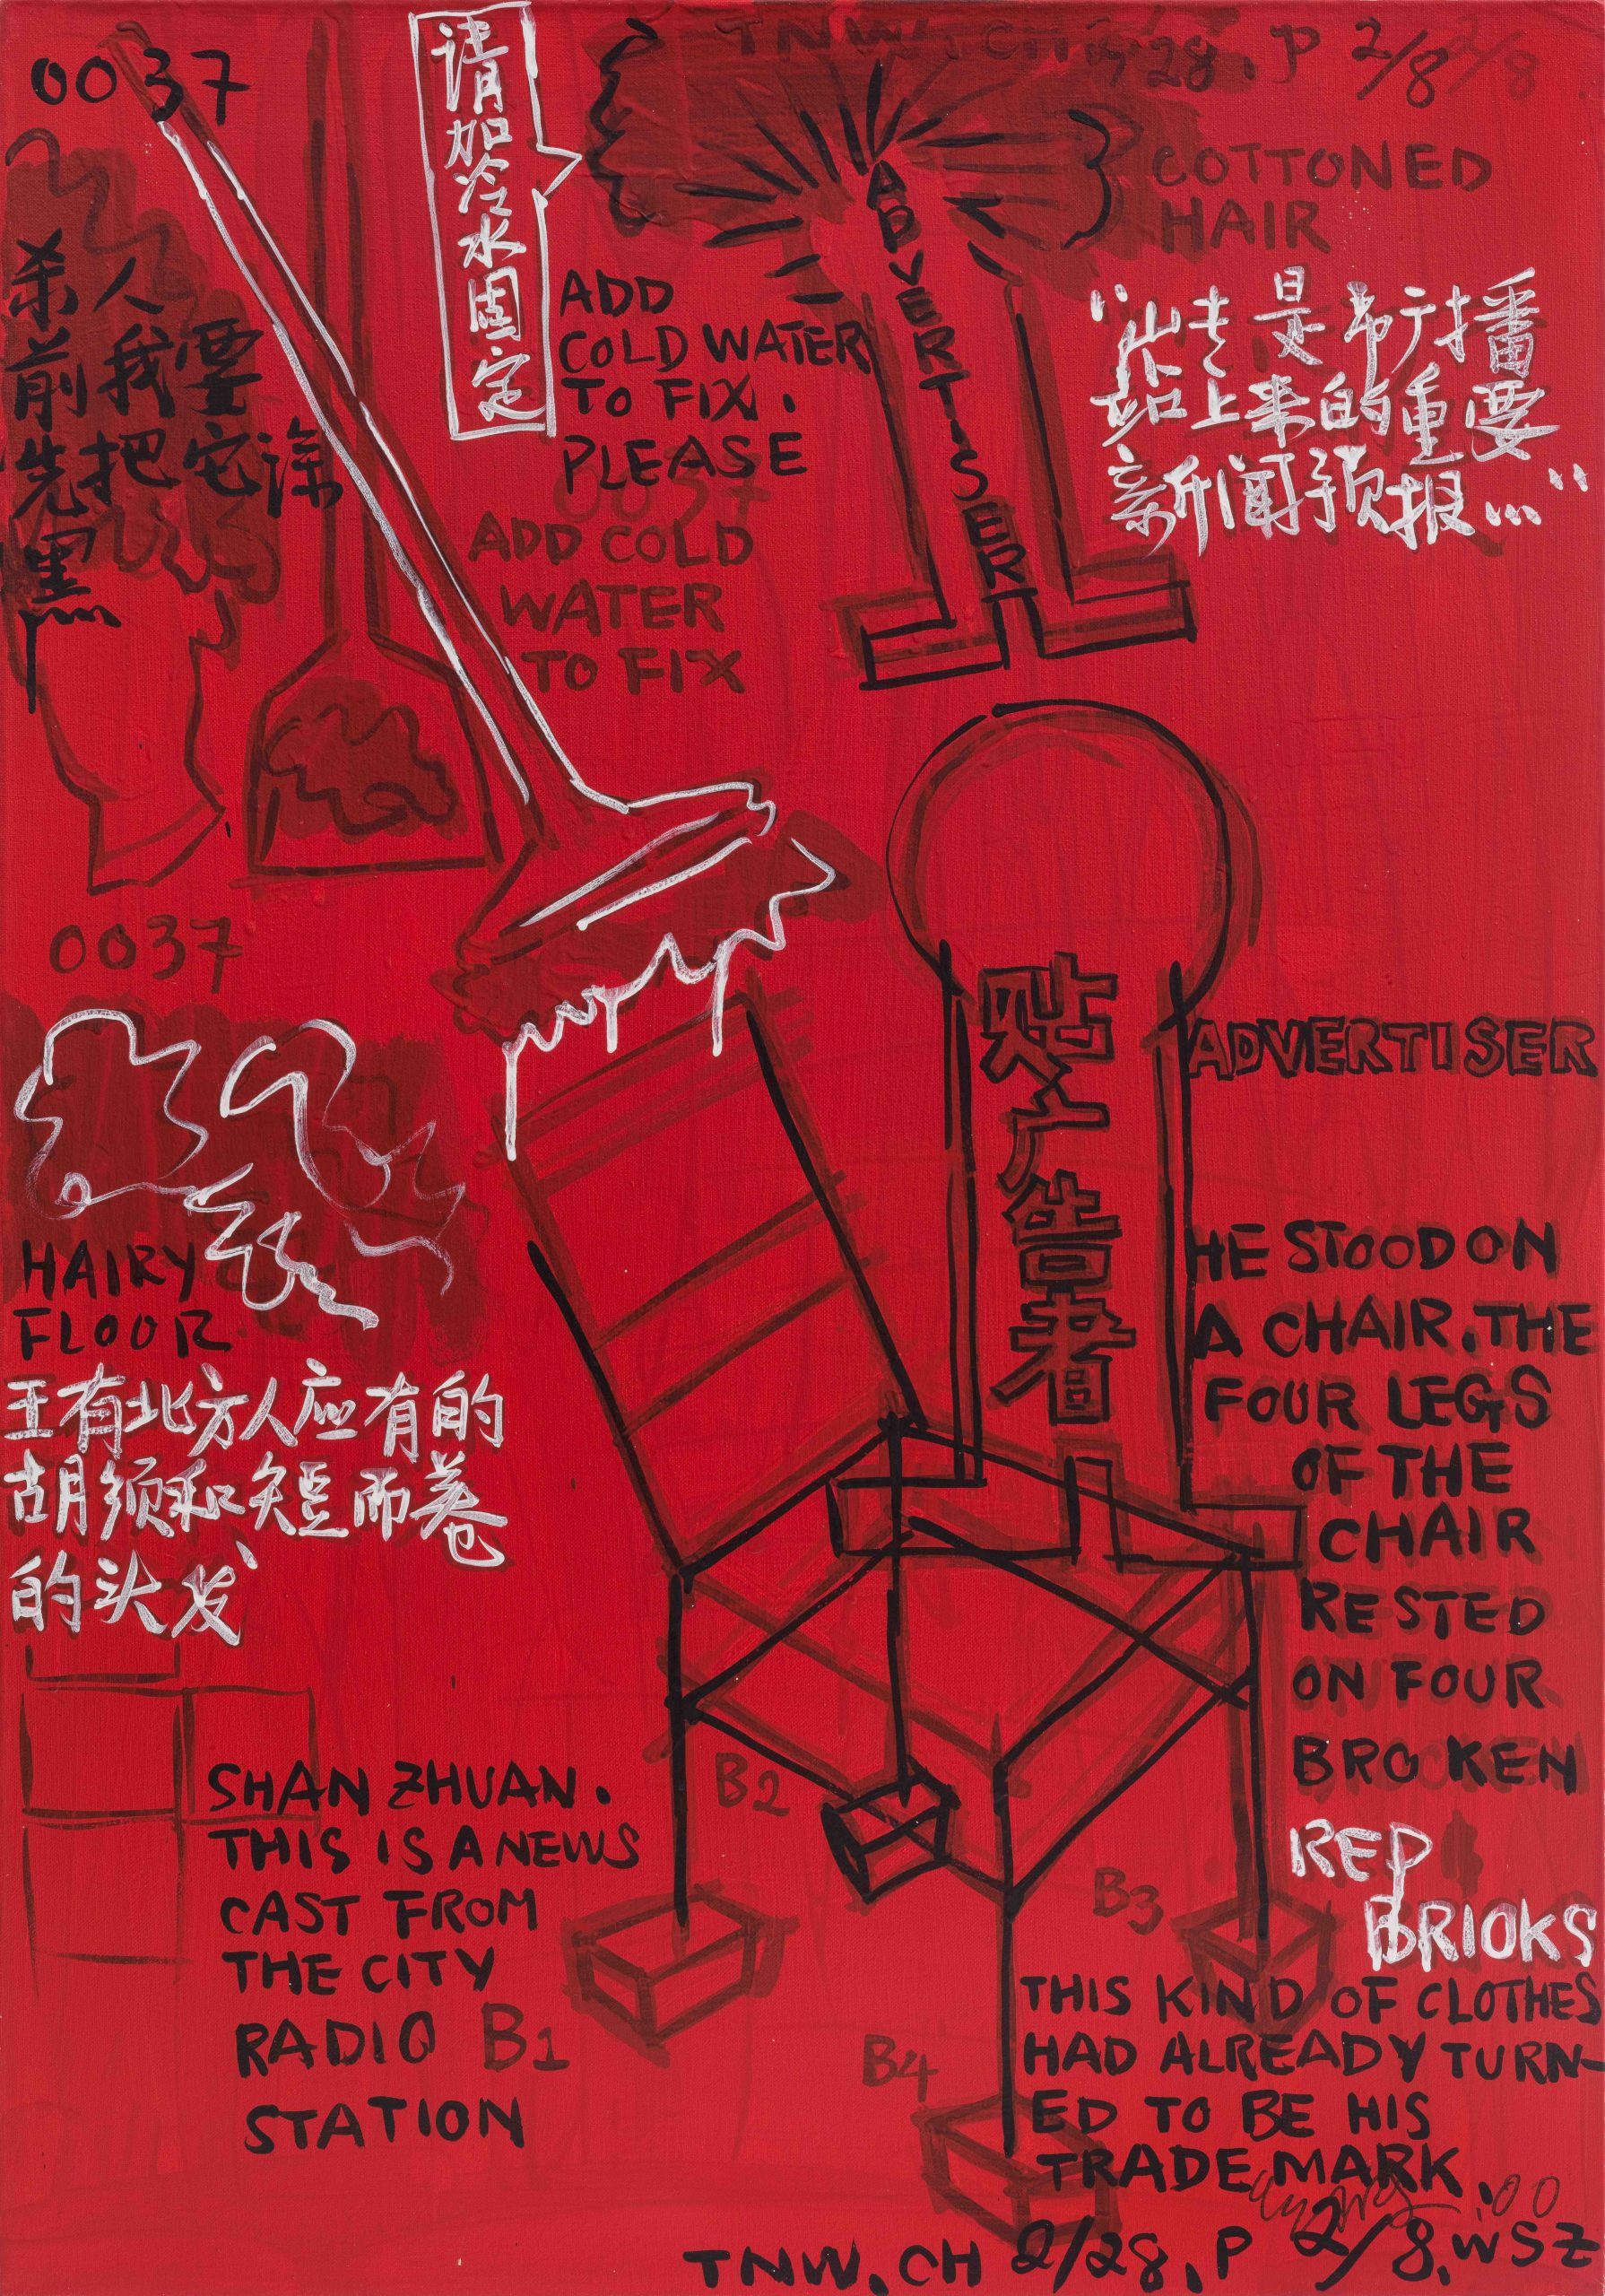 0037
请加冷水固定
2/8
COTTONED
HAIR
ADVERTISER
杀人
前我要
先把它涂
黑
ADD
COLD WATER
TO FIX.
PLEASE
0037
ADD COLD
WATER
TO FIX
是市广播
站上来的重要
新闻预报..."
0037
贴广告者
ADVERTISER
HAIRY
FLOOR
王有北方人应有的
胡须和短而卷
的头发
HE STOOD ON
A CHAIR. THE
FOUR LEGS
OF THE
CHAIR
RESTED
ON FOUR
BROKEN
RED
BRICKS
SHAN ZHUAN.
THIS IS A NEWS
CAST FROM
THE CITY
RADIO
STATION
B1
B2
B3
B4
THIS KIND OF CLOTHES
HAD ALREADY TURN-
ED TO BE HIS
TRADE MARK.
TNW. CH 2/28. P 2/8. WSZ